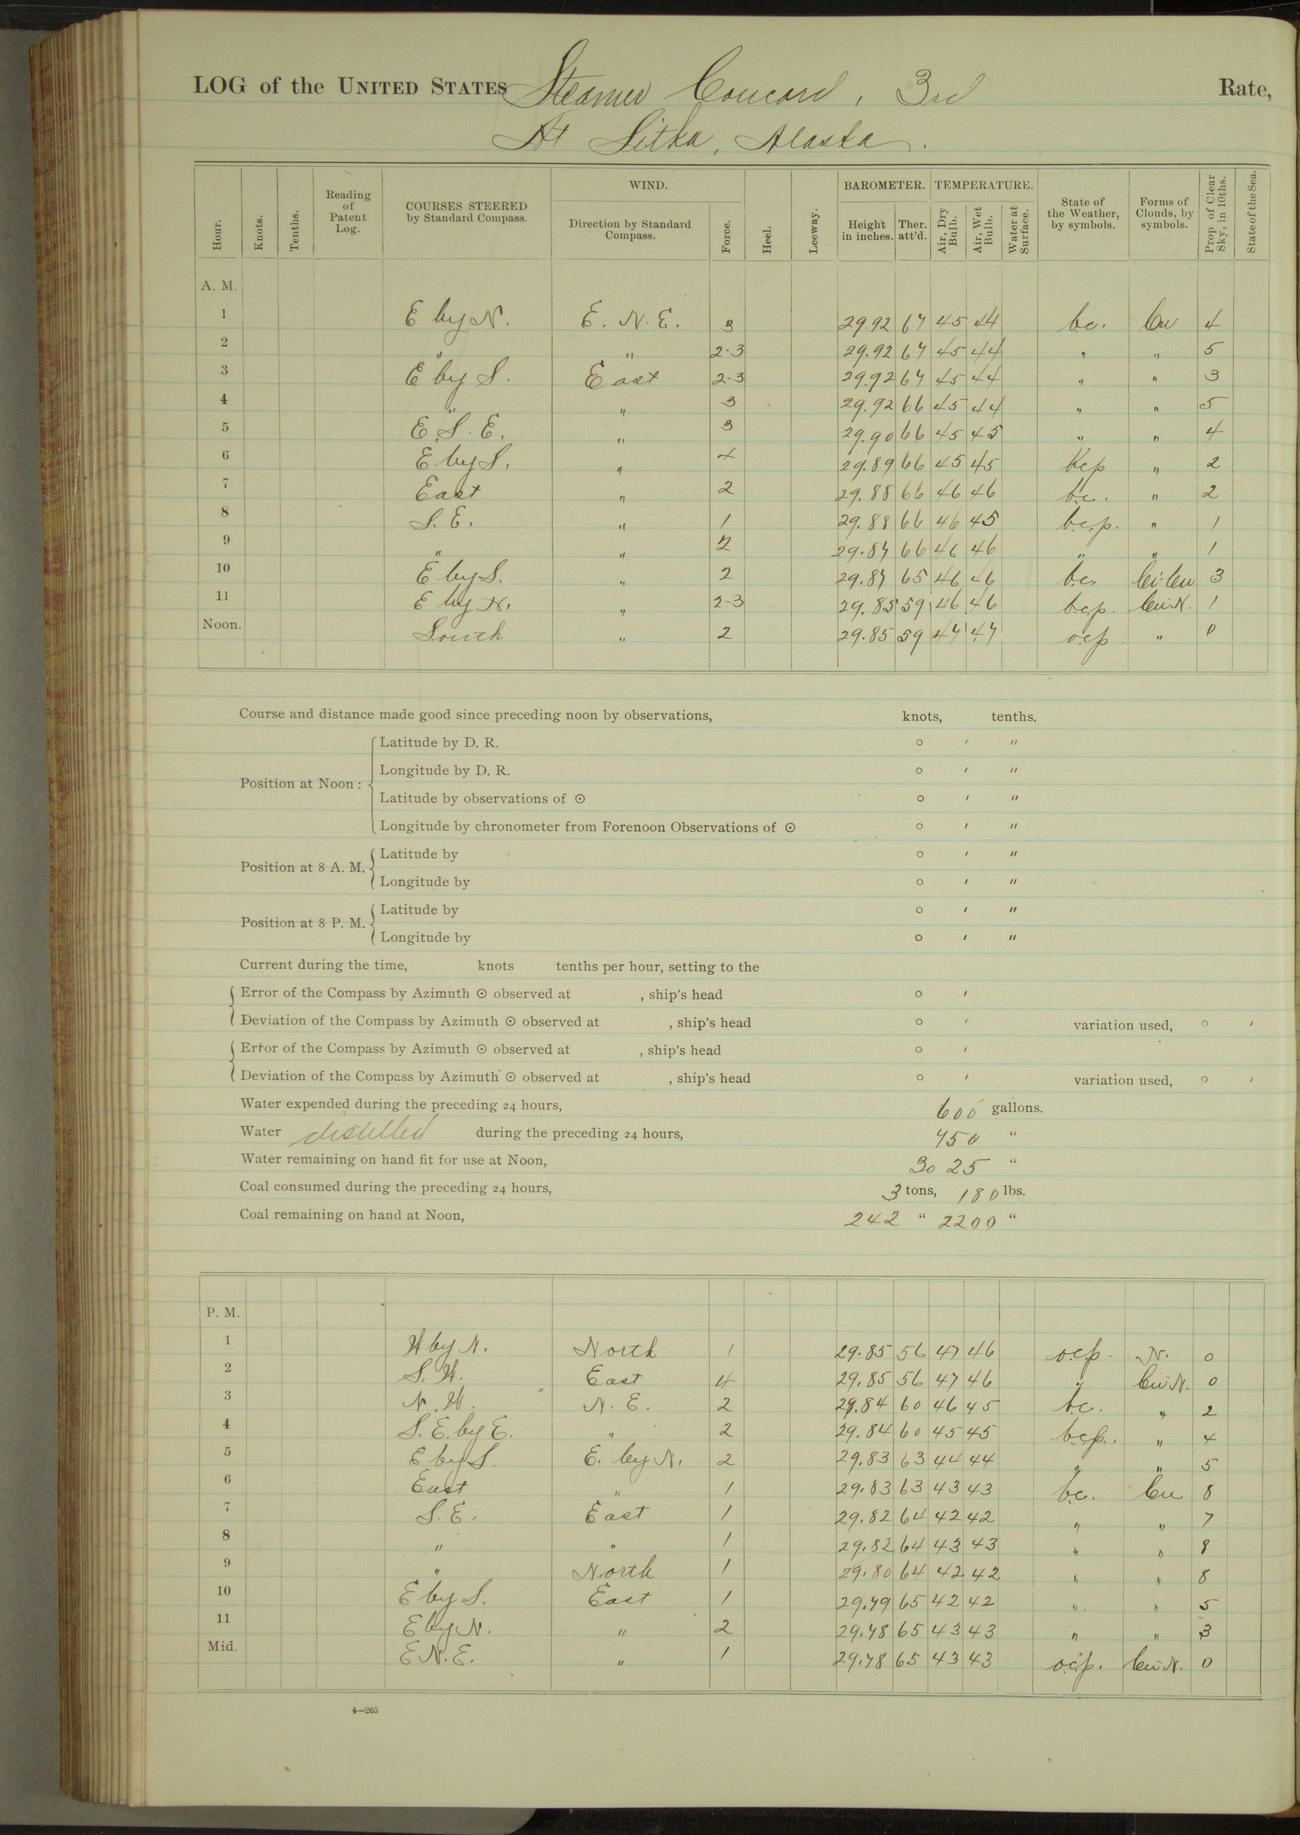 LOG of the UNITED STATES Steamer Concord, 3rd Rate,
At Sitka, Alaska.
Hour. Knots. Tenths. Reading of Patent Log. COURSES STEERED by Standard Compass. WIND. Direction by Standard Compass. Force. Heel. Leeway. BAROMETER. Height in inches. Ther. att'd. TEMPERATURE. Air, Dry Bulb. Air, Wet Bulb. Water at Surface. State of the Weather, by symbols. Forms of Clouds, by symbols. Prop. of Clear Sky, in 10ths. State of the Sea.
A. M.
1 E by N. E. N. E. 3 29.92 67 45 44 bc. Cu 4
2 " " 2-3 29.92 67 45 44 " " 5
3 E by S. East 2-3 29.92 67 45 44 " " 3
4 " " 3 29.92 66 45 44 " " 5
5 E. S. E. " 3 29.90 66 45 45 " " 4
6 E by S. " 4 29.89 66 45 45 bcp " 2
7 East " 2 29.88 66 46 46 bc. " 2
8 S. E. " 1 29.88 66 46 45 bcp. " 1
9 " " 2 29.87 66 46 46 " " 1
10 E by S. " 2 29.87 65 46 46 bc. Ci-Cu 3
11 E by N. " 2-3 29.85 59 46 46 bcp. Cu-N. 1
Noon. South " 2 29.85 59 47 47 ocp " 0
Course and distance made good since preceding noon by observations, knots, tenths.
Position at Noon :
Latitude by D. R. ° ′ ″
Longitude by D. R. ° ′ ″
Latitude by observations of ⊙ ° ′ ″
Longitude by chronometer from Forenoon Observations of ⊙ ° ′ ″
Position at 8 A. M.
Latitude by ° ′ ″
Longitude by ° ′ ″
Position at 8 P. M.
Latitude by ° ′ ″
Longitude by ° ′ ″
Current during the time, knots tenths per hour, setting to the
Error of the Compass by Azimuth ⊙ observed at , ship's head ° ′
Deviation of the Compass by Azimuth ⊙ observed at , ship's head ° ′ variation used, ° ′
Error of the Compass by Azimuth ⊙ observed at , ship's head ° ′
Deviation of the Compass by Azimuth ⊙ observed at , ship's head ° ′ variation used, ° ′
Water expended during the preceding 24 hours, 600 gallons.
Water distilled during the preceding 24 hours, 450 "
Water remaining on hand fit for use at Noon, 3025 "
Coal consumed during the preceding 24 hours, 3 tons, 180 lbs.
Coal remaining on hand at Noon, 242 " 2200 "
P. M.
1 W by N. North 1 29.85 56 47 46 ocp. N. 0
2 S. W. East 4 29.85 56 47 46 " Cu-N. 0
3 N. W. N. E. 2 29.84 60 46 45 bc. " 2
4 S. E. by E. " 2 29.84 60 45 45 bcp. " 4
5 E by S. E. by N. 2 29.83 63 44 44 " " 5
6 East " 1 29.83 63 43 43 bc. Cu 8
7 S. E. East 1 29.82 64 42 42 " " 7
8 " " 1 29.82 64 43 43 " " 8
9 " North 1 29.80 64 42 42 " " 8
10 E by S. East 1 29.79 65 42 42 " " 5
11 E by N. " 2 29.78 65 43 43 " " 3
Mid. E N. E. " 1 29.78 65 43 43 ocp. Cu-N. 0
4—265